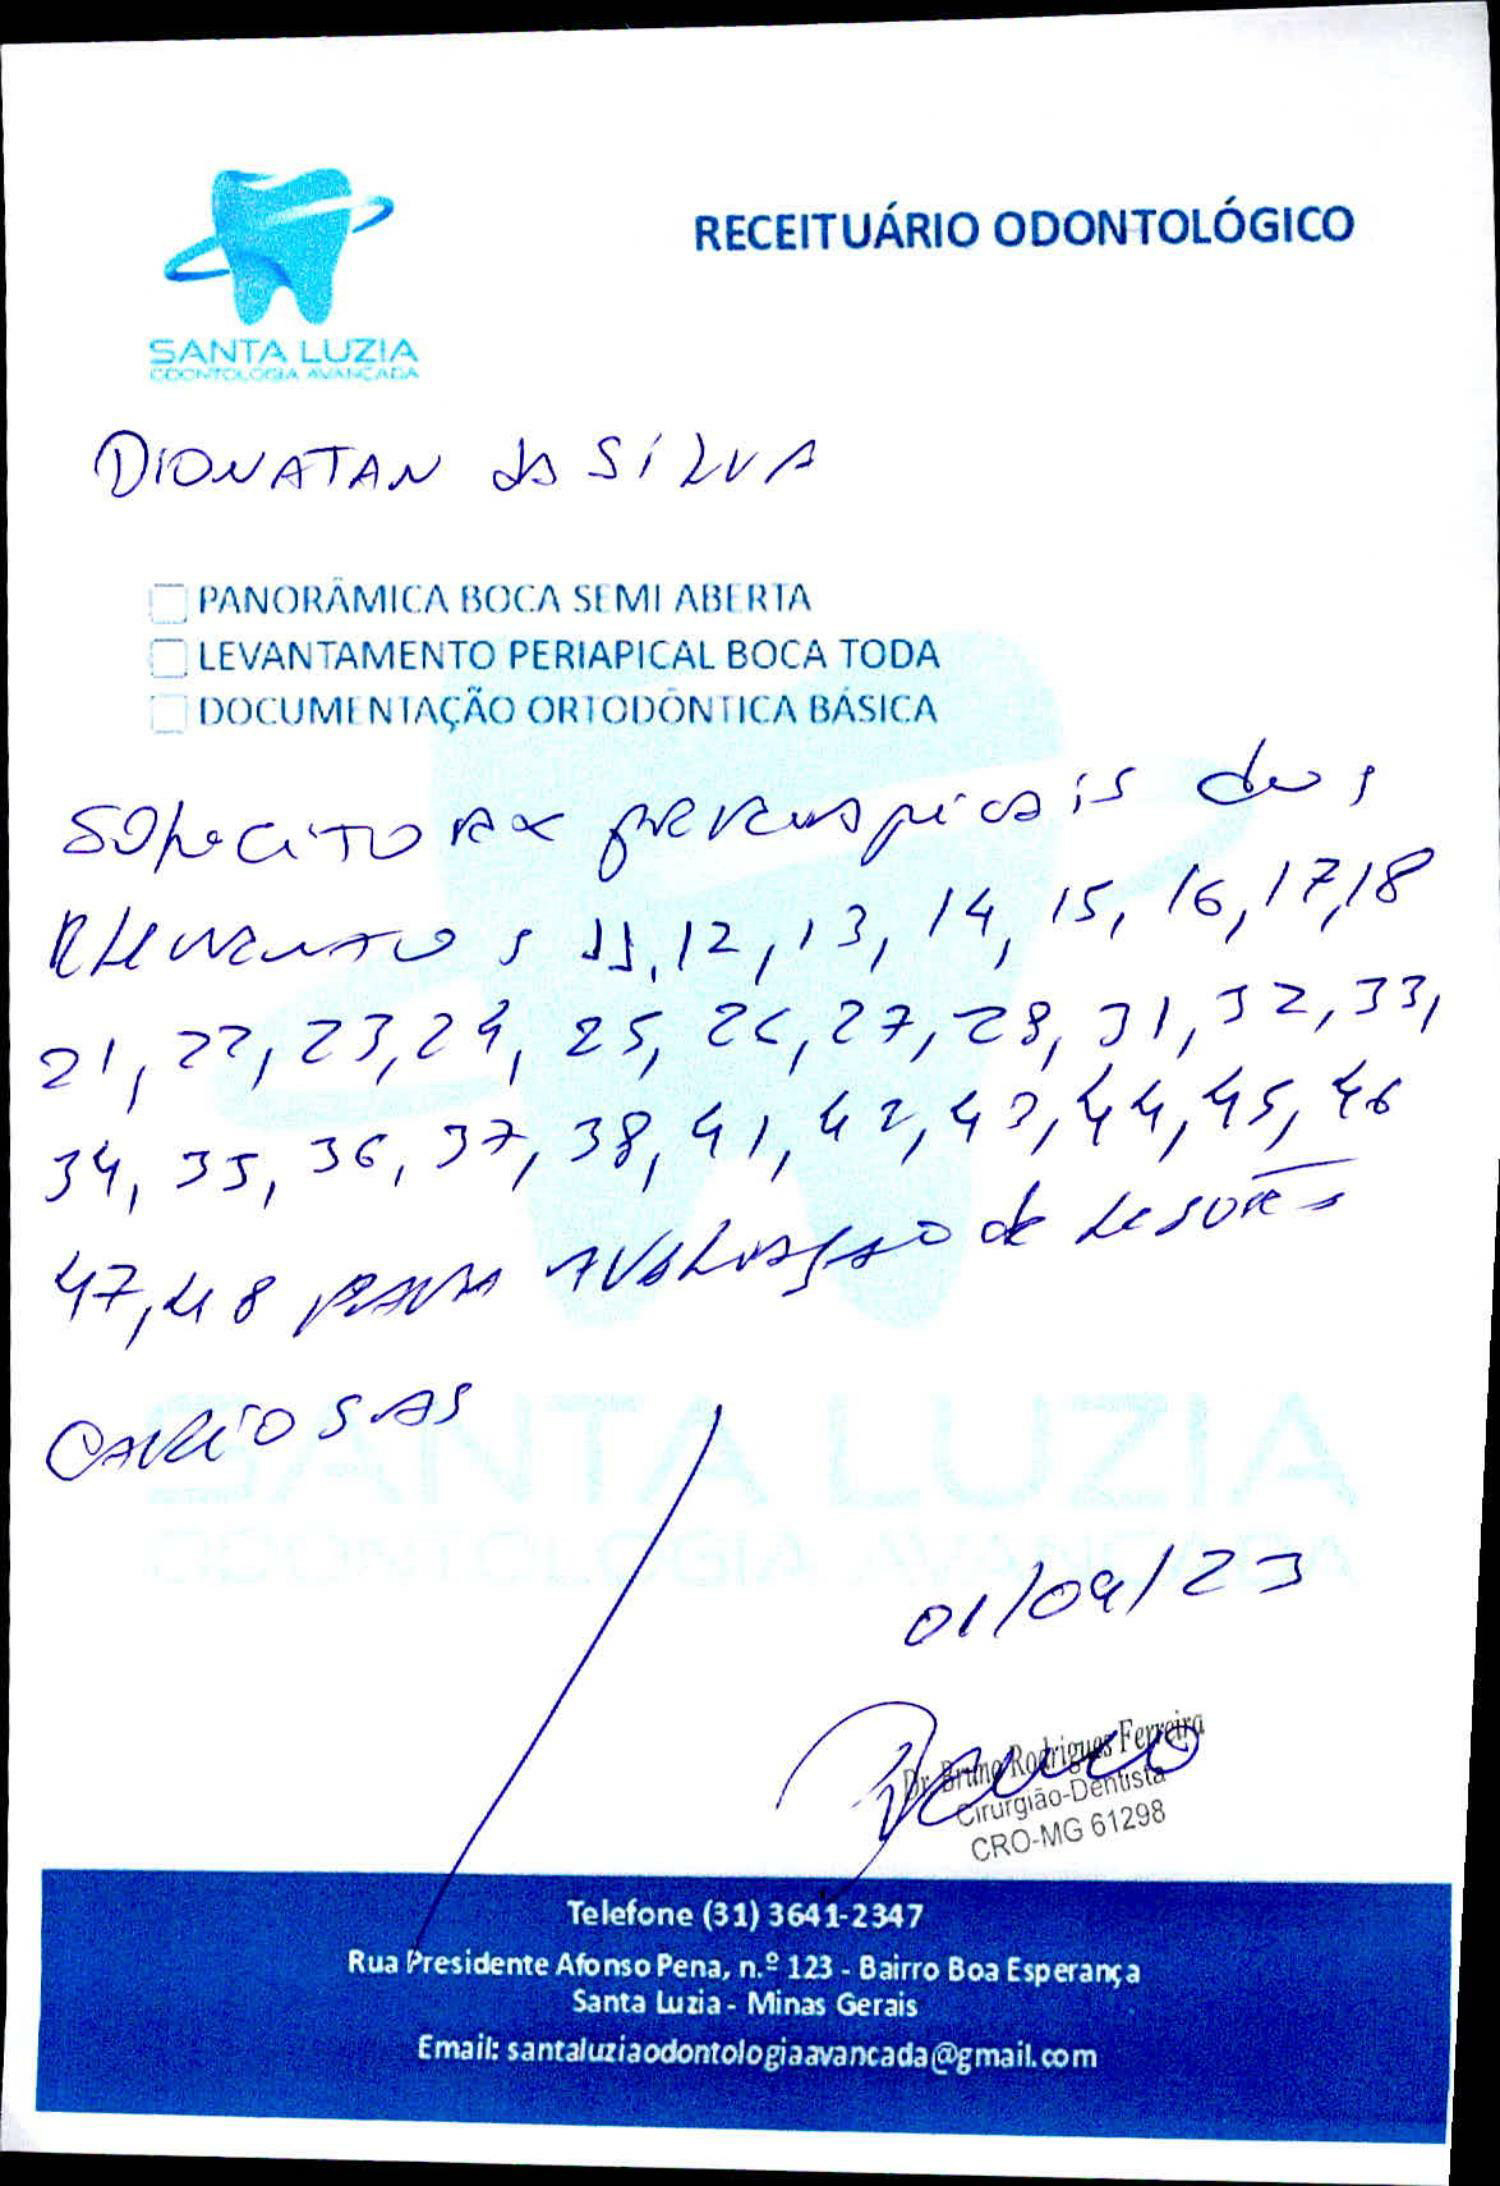 SANTA LUZIA
ODONTOLOGIA AVANÇADA
RECEITUÁRIO ODONTOLÓGICO
DIONATAN da SILVA
PANORÂMICA BOCA SEMI ABERTA
LEVANTAMENTO PERIAPICAL BOCA TODA
DOCUMENTAÇÃO ORTODÔNTICA BÁSICA
Solicito RX dos
Elementos 11, 12, 13, 14, 15, 16, 17, 18
21, 22, 23, 24, 25, 26, 27, 28, 31, 32, 33,
34, 35, 36, 37, 38, 41, 42, 43, 44, 45, 46
47, 48 PARA AVALIAÇÃO de LESÕES
CARIOSAS
SANTA LUZIA
ODONTOLOGIA AVANÇADA
01/09/23
Dr. Bruno Rodrigues Ferreira
Cirurgião-Dentista
CRO-MG 61298
Telefone (31) 3641-2347
Rua Presidente Afonso Pena, n.º 123 - Bairro Boa Esperança
Santa Luzia - Minas Gerais
Email: santaluziaodontologiaavancada@gmail.com